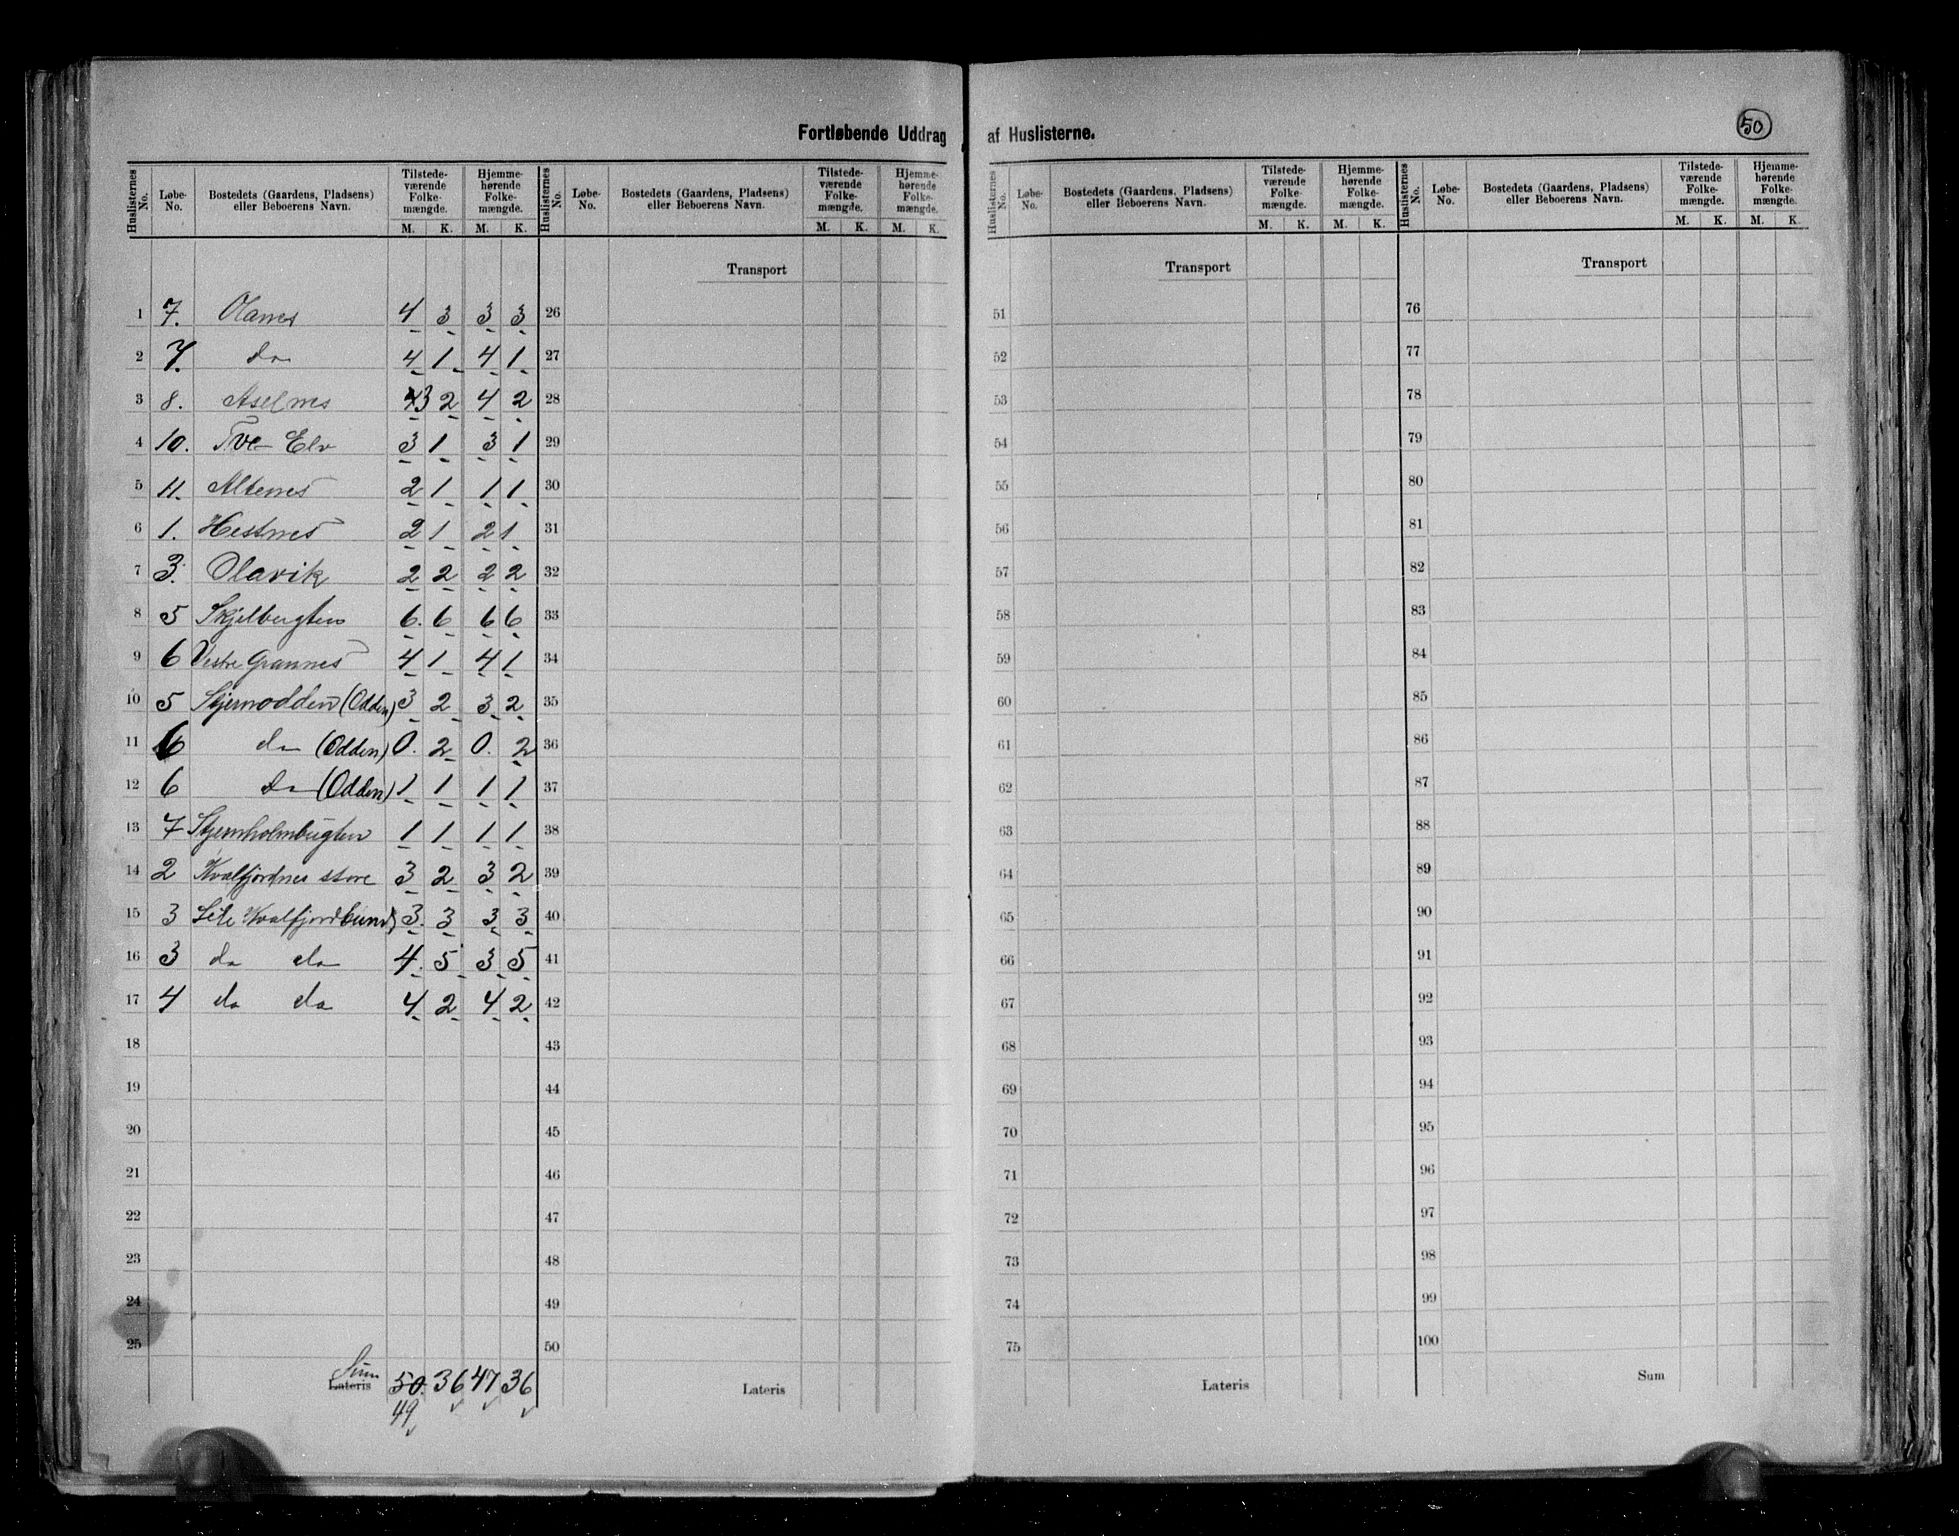 Fortløbende Uddrag af Huslisterne.
50
Huslisternes No. Løbe-No. Bostedets (Gaardens, Pladsens) eller Beboerens Navn. Tilstedeværende Folkemængde. M. K. Hjemmehørende Folkemængde. M. K.
Huslisternes No. Løbe-No. Bostedets (Gaardens, Pladsens) eller Beboerens Navn. Tilstedeværende Folkemængde. M. K. Hjemmehørende Folkemængde. M. K.
Huslisternes No. Løbe-No. Bostedets (Gaardens, Pladsens) eller Beboerens Navn. Tilstedeværende Folkemængde. M. K. Hjemmehørende Folkemængde. M. K.
Huslisternes No. Løbe-No. Bostedets (Gaardens, Pladsens) eller Beboerens Navn. Tilstedeværende Folkemængde. M. K. Hjemmehørende Folkemængde. M. K.
Transport Transport Transport
1 7. Olanes 4 3 3 3 26 51 76
2 7. do 4 1 4 1 27 52 77
3 8. Aselnes 3 2 4 2 28 53 78
4 10. Tve Elv 3 1 3 1 29 54 79
5 11. Altenes 2 1 1 1 30 55 80
6 1. Hestnes 2 1 2 1 31 56 81
7 3. Olavik 2 2 2 2 32 57 82
8 5 Skjelbugten 6. 6 6 6 33 58 83
9 6 Vestre Grannes 4 1 4 1 34 59 84
10 5 Stjernodden (Odden) 3 2 3 2 35 60 85
11 6 do (Odden) 0. 2 0. 2 36 61 86
12 6 do (Odden) 1 1 1 1 37 62 87
13 7 Stjernholmbugten 1 1 1 1 38 63 88
14 2 Kvalfjordnes store 3 2 3 2 39 64 89
15 3 Lile Kvalfjordbund 3. 3 3 3 40 65 90
16 3 do do 4. 5 3 5 41 66 91
17 4 do do 4 2 4 2 42 67 92
18 43 68 93
19 44 69 94
20 45 70 95
21 46 71 96
22 47 72 97
23 48 73 98
24 49 74 99
25 50 75 100
Sum
Lateris 50. 36 47 36 Lateris Lateris Sum
49